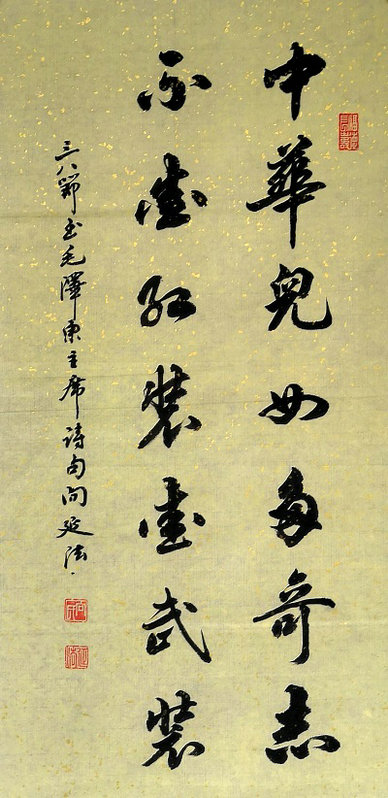 中華兒女多奇志
不愛紅裝愛武裝
三八節書毛澤東主席詩句向延法